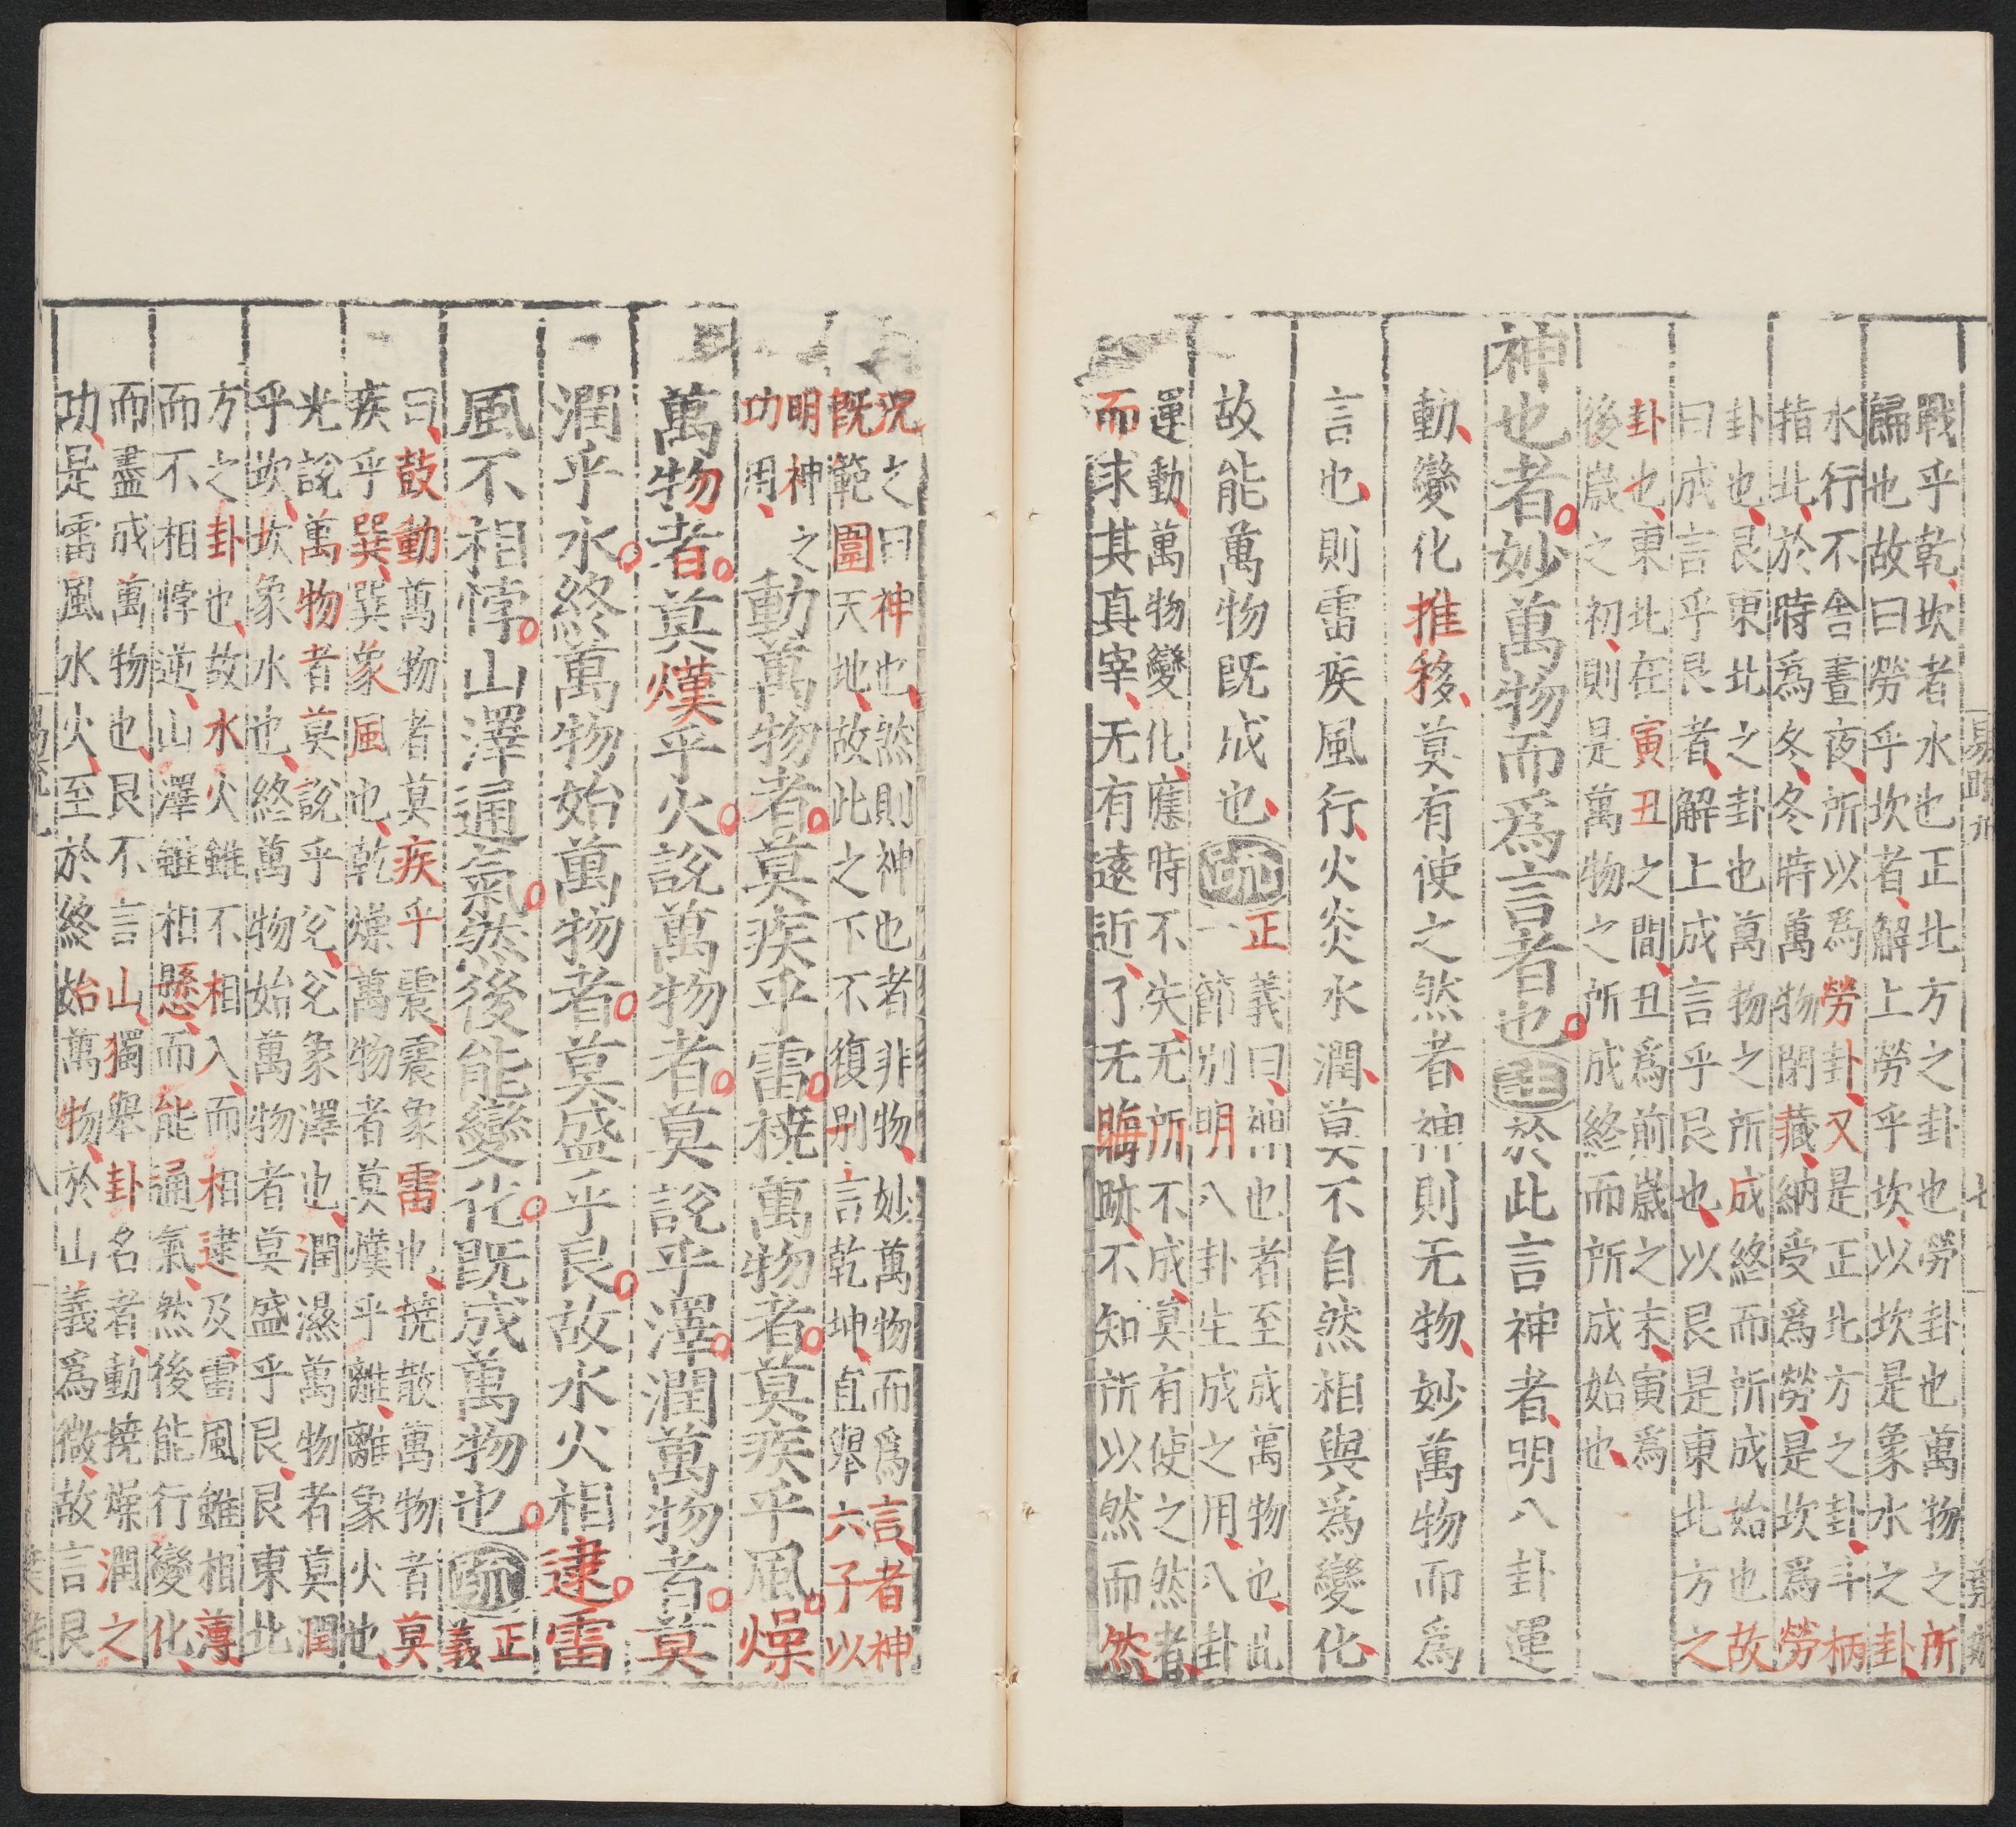 易疏九 七
戰乎乾坎者水也正北方之卦也勞卦也萬物之所
歸也故曰勞乎坎者解上勞乎坎以坎是象水之卦
水行不舍晝夜所以爲勞卦又是正北方之卦斗柄
指北於時爲冬冬時萬物閉藏納受爲勞是坎爲勞
卦也艮東北之卦也萬物之所成終而所成始也故
曰成言乎艮者解上成言乎艮也以艮是東北方之
卦也東北在寅丑之間丑爲前歲之末寅爲
後歲之初則是萬物之所成終而所成始也
神也者妙萬物而爲言者也注於此言神者明八卦運
動變化推移莫有使之然者神則无物妙萬物而爲
言也則雷疾風行火炎水潤莫不自然相與爲變化
故能萬物既成也疏
正義曰神也者至成萬物也此
一節別明八卦生成之用八卦
運動萬物變化應時不失无所不成莫有使之然者
而求其真宰无有遠近了无晦跡不知所以然而然
況之曰神也然則神也者非物妙萬物而爲言者神
既範圍天地故此之下不復別言乾坤直舉六子以
明神之
功用
動萬物者莫疾乎雷橈萬物者莫疾乎風燥
萬物者莫熯乎火說萬物者莫說乎澤潤萬物者莫
潤乎水終萬物始萬物者莫盛乎艮故水火相逮雷
風不相悖山澤通氣然後能變化既成萬物也疏
正
義
曰鼓動萬物者莫疾乎震震象雷也橈散萬物者莫
疾乎巽巽象風也乾燥萬物者莫熯乎離離象火也
光說萬物者莫說乎兌兌象澤也潤濕萬物者莫潤
乎坎坎象水也終萬物始萬物者莫盛乎艮艮東北
方之卦也故水火雖不相入而相逮及雷風雖相薄
而不相悖逆山澤雖相懸而能通氣然後能行變化
而盡成萬物也艮不言山獨舉卦名者動橈燥潤之
功是雷風水火至於終始萬物於山義爲微故言艮
八